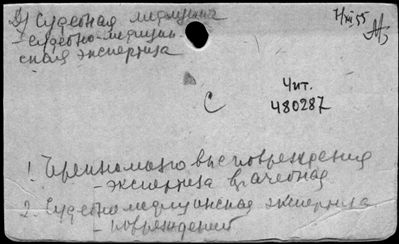 Д) Судебная медицина
- судебно-медицин-
ская экспертиза
7/XII 55
С
Чит.
480287
1. Черепномозговые повреждения
- экспертиза врачебная
2. Судебномедицинская экспертиза
- повреждений